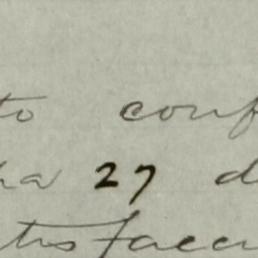 to conf
ha 27 d
tisfacci